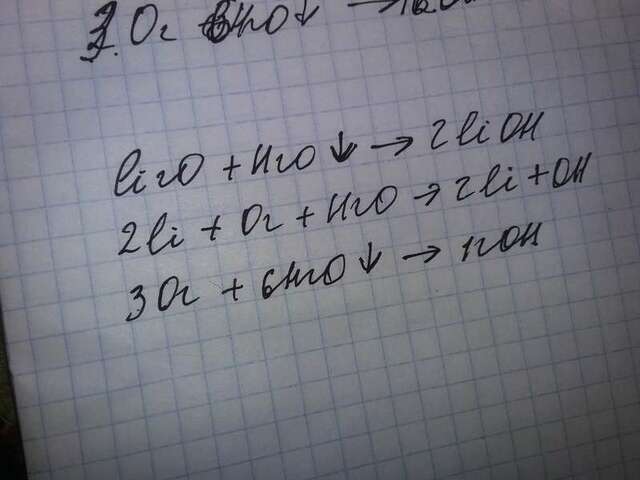 O2 6H2O↓ →
Li2O + H2O ↓ → 2LiOH
2Li + O2 + H2O → 2Li + OH
3O2 + 6H2O ↓ → 12OH